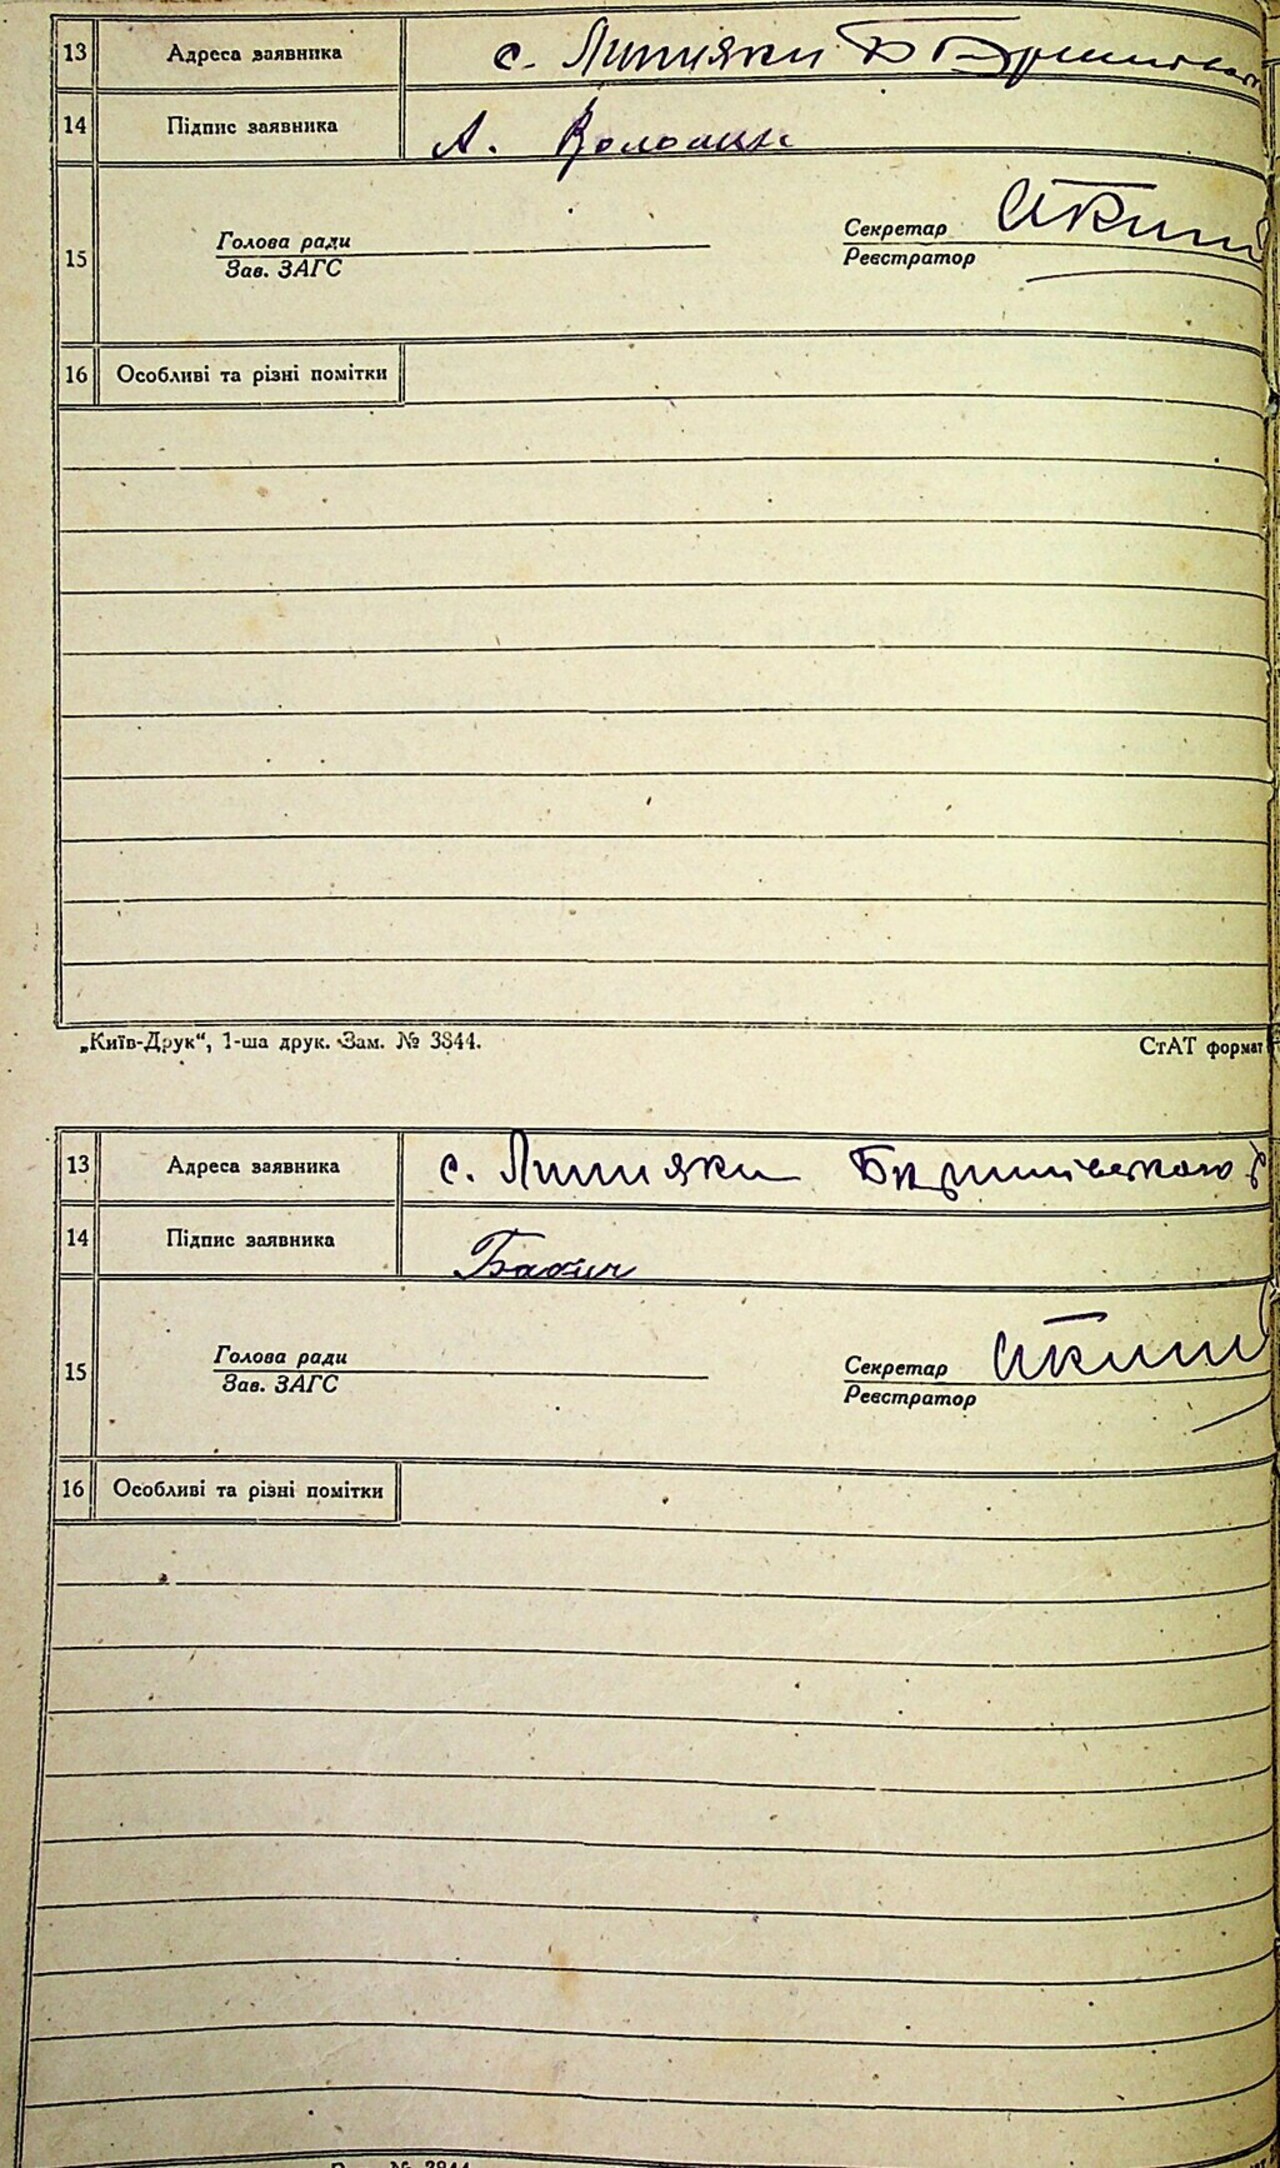 13 Адреса заявника с. Липняки
14 Підпис заявника А.
15 Голова ради Секретар
Зав. ЗАГС Реєстратор
16 Особливі та різні помітки
„Київ-Друк“, 1-ша друк. Зам. № 3844. СтАТ формат
13 Адреса заявника с. Липняки
14 Підпис заявника
15 Голова ради Секретар
Зав. ЗАГС Реєстратор
16 Особливі та різні помітки
№ 3844